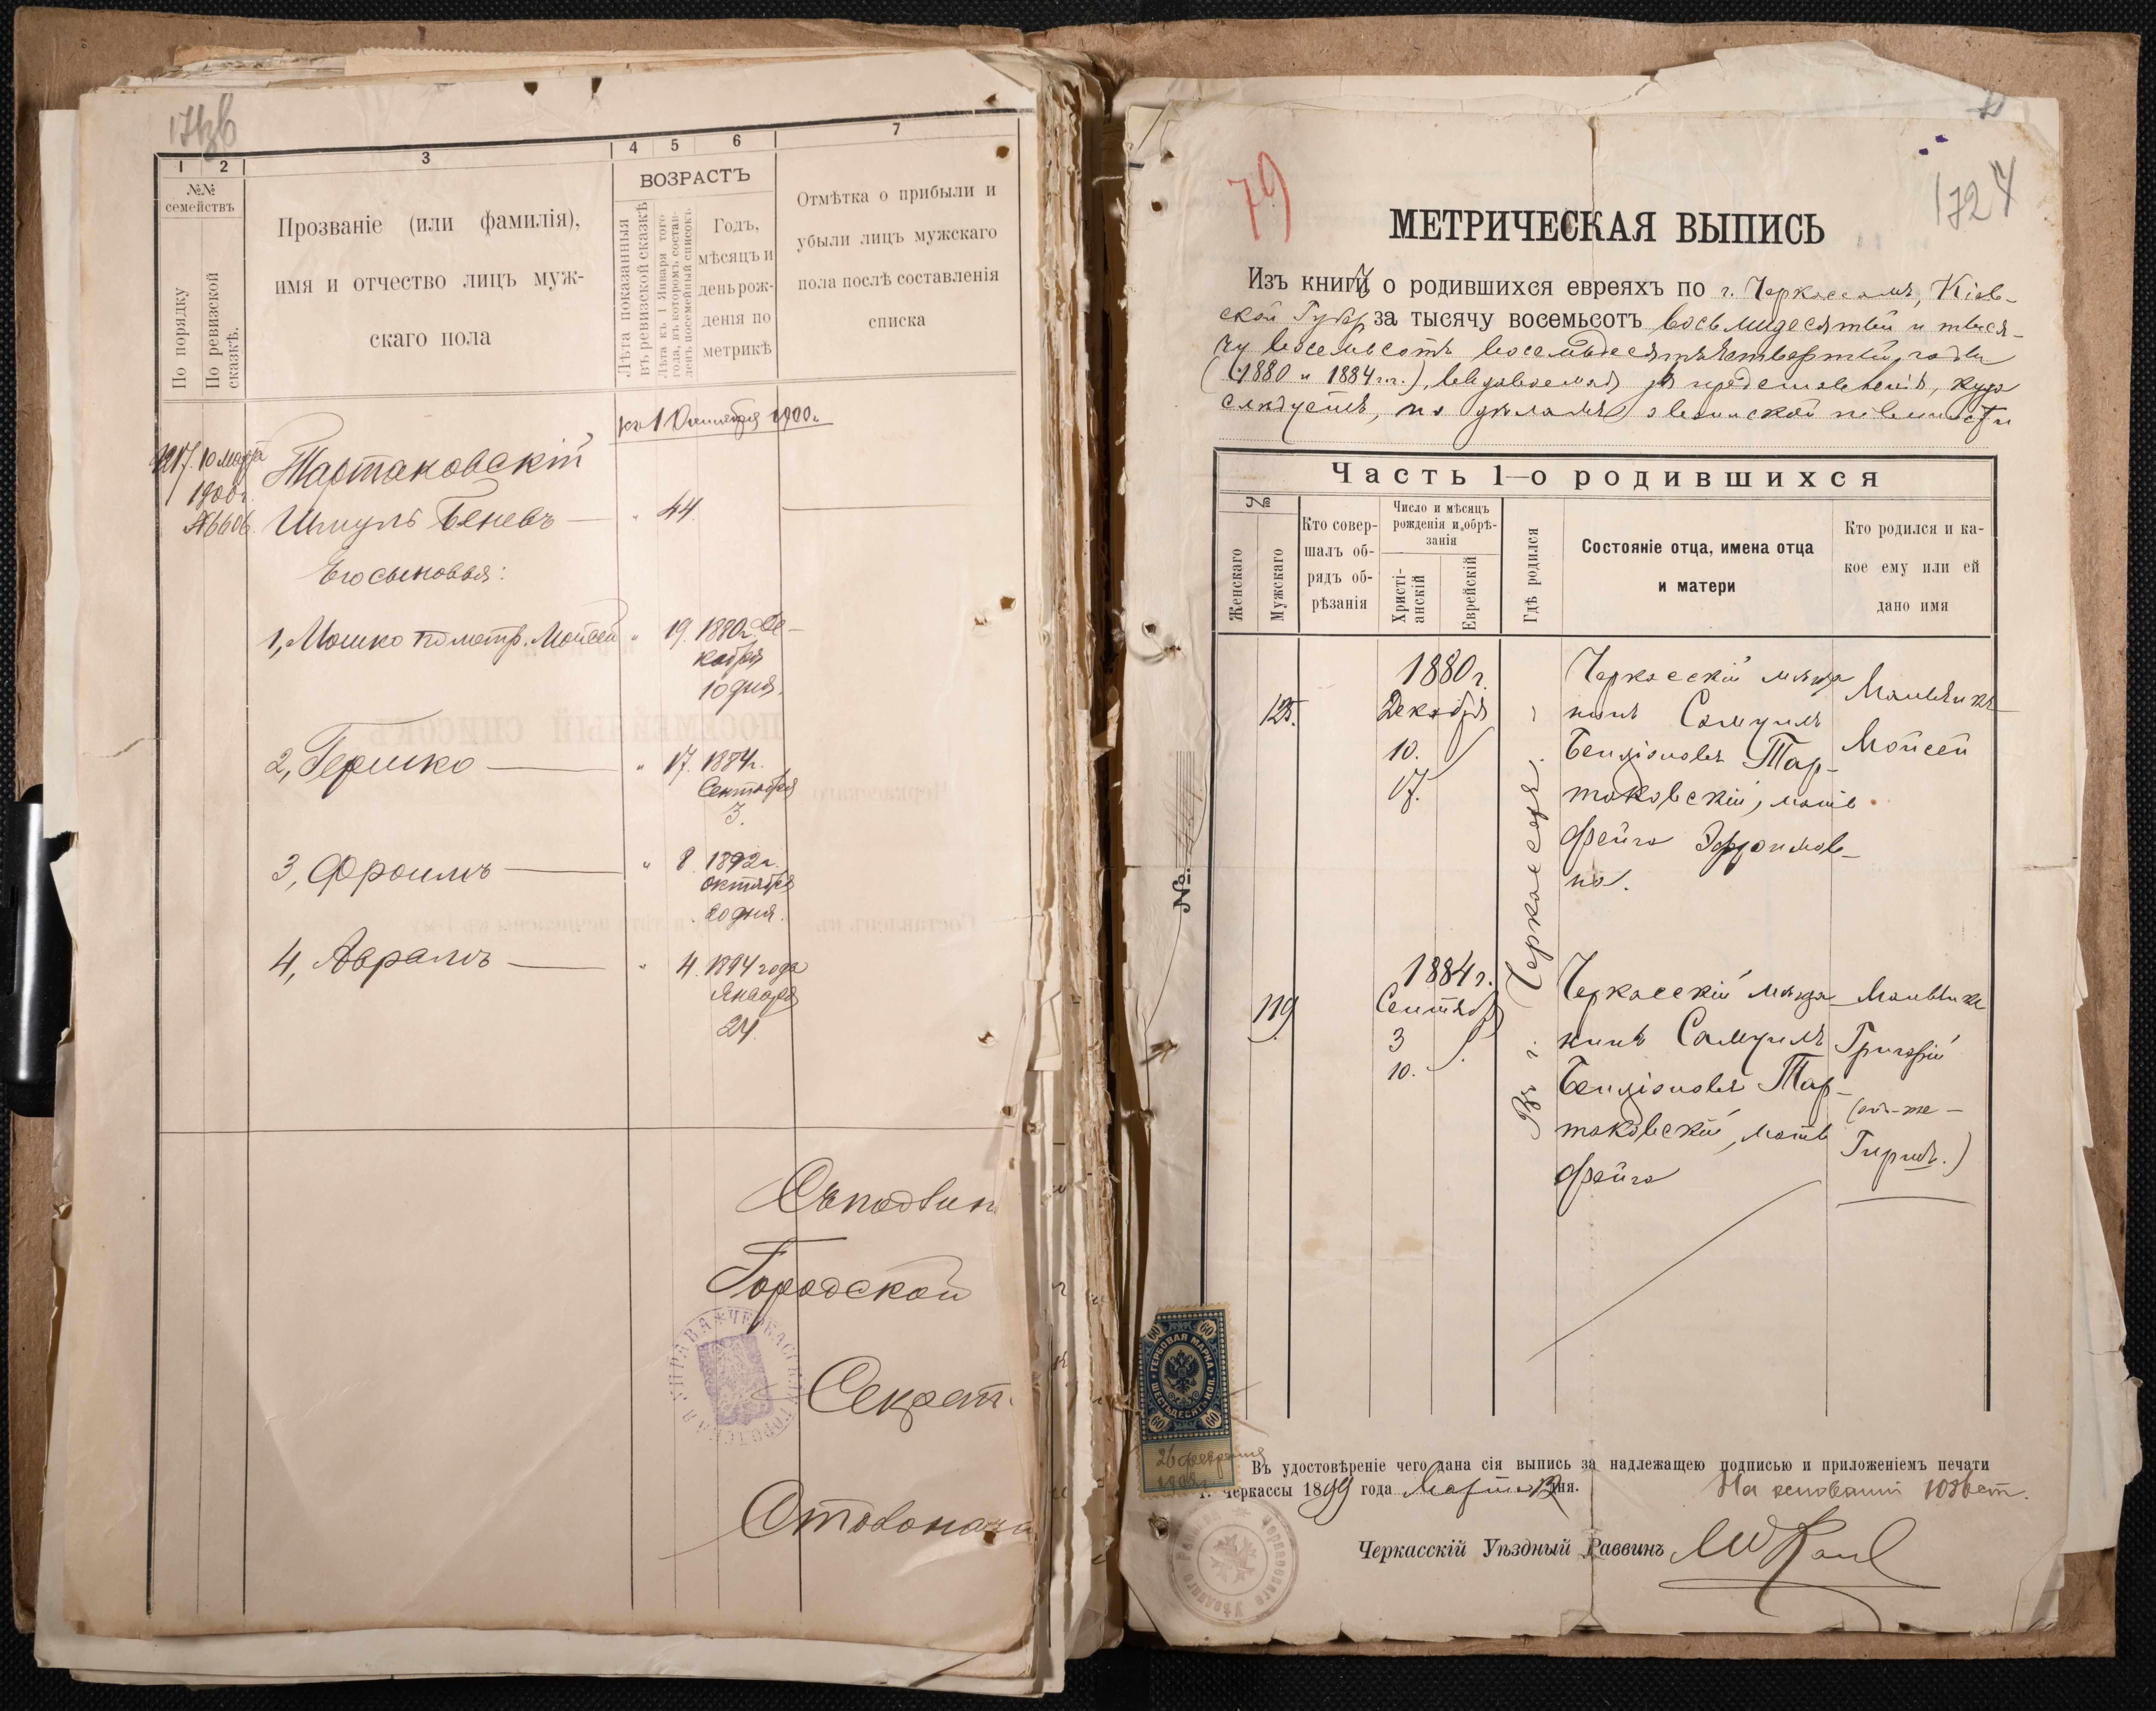 1
2
3
4
5
6
7
№№
семействъ
По порядку
По ревизской
сказкѣ.
Прозваніе (или фамилія),
имя и отчество лицъ муж-
скаго пола
ВОЗРАСТЪ
Лѣта показанныя
въ ревизской сказкѣ
Лѣта къ 1 Января того
года, въ которомъ состав-
ленъ посемейный списокъ
Годъ,
мѣсяцъ и
день рож-
денія по
метрикѣ
Отмѣтка о прибыли и
убыли лицъ мужскаго
пола послѣ составленія
списка
къ 1 Октября 1900 г.
10 марта
1900 г.
№ 6606
Тартаковскій
Шмуль Беневъ — " 44
Его сыновья:
1, Мошко по метр. Мойсей " 19. 1880 г. Де-
кабря
10 дня.
2, Гершко — " 17. 1884 г.
Сентября
3.
3, Фроимъ — " 8 1892 г.
октября
20 дня.
4, Аврамъ — " 4. 1894 года
Января
24
Городской
Секрет
79
172
МЕТРИЧЕСКАЯ ВЫПИСЬ
Изъ книги о родившихся евреяхъ по г. Черкассамъ, Кіев-
ской Губер за тысячу восемьсотъ восьмидесятый и тыся-
чу восемьсотъ восемьдесятъ четвертый годы
(1880 и 1884 г.г.), выдаваемая для представленія, куда
слѣдуетъ, по дѣламъ о воинской повинности
Часть 1-о родившихся
№
Женскаго
Мужскаго
Кто совер-
шалъ об-
рядъ об-
рѣзанія
Число и мѣсяцъ
рожденія и обрѣ-
занія
Христі-
анскій
Еврейскій
Гдѣ родился
Состояніе отца, имена отца
и матери
Кто родился и ка-
кое ему или ей
дано имя
125.
1880 г.
Декабря
10.
17.
Въ г. Черкассахъ.
Черкасскій мѣща-
нинъ Самуилъ
Бенціоновъ Тар-
таковскій, мать
Фейга Эфроимов-
на.
Мальчикъ
Мойсей
119
1884 г.
Сентяб
3
10.
Черкасскій мѣща-
нинъ Самуилъ
Бенціоновъ Тар-
таковскій, мать
Фейга
Мальчикъ
Григорій
(онъ-же —
Гиршъ.)
№
60
60
ГЕРБОВАЯ МАРКА
ШЕСТЬДЕСЯТЪ КОП.
60
60
26 февраля
Въ удостовѣреніе чего дана сія выпись за надлежащею подписью и приложеніемъ печати
г. Черкассы 1899 года Марта дня.
На основаніи
Черкасскій Уѣздный Раввинъ